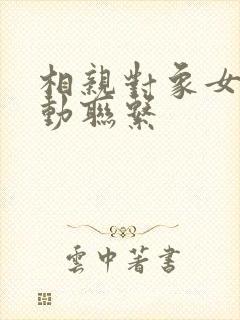 相親對象女
動聯繫
雲中著書